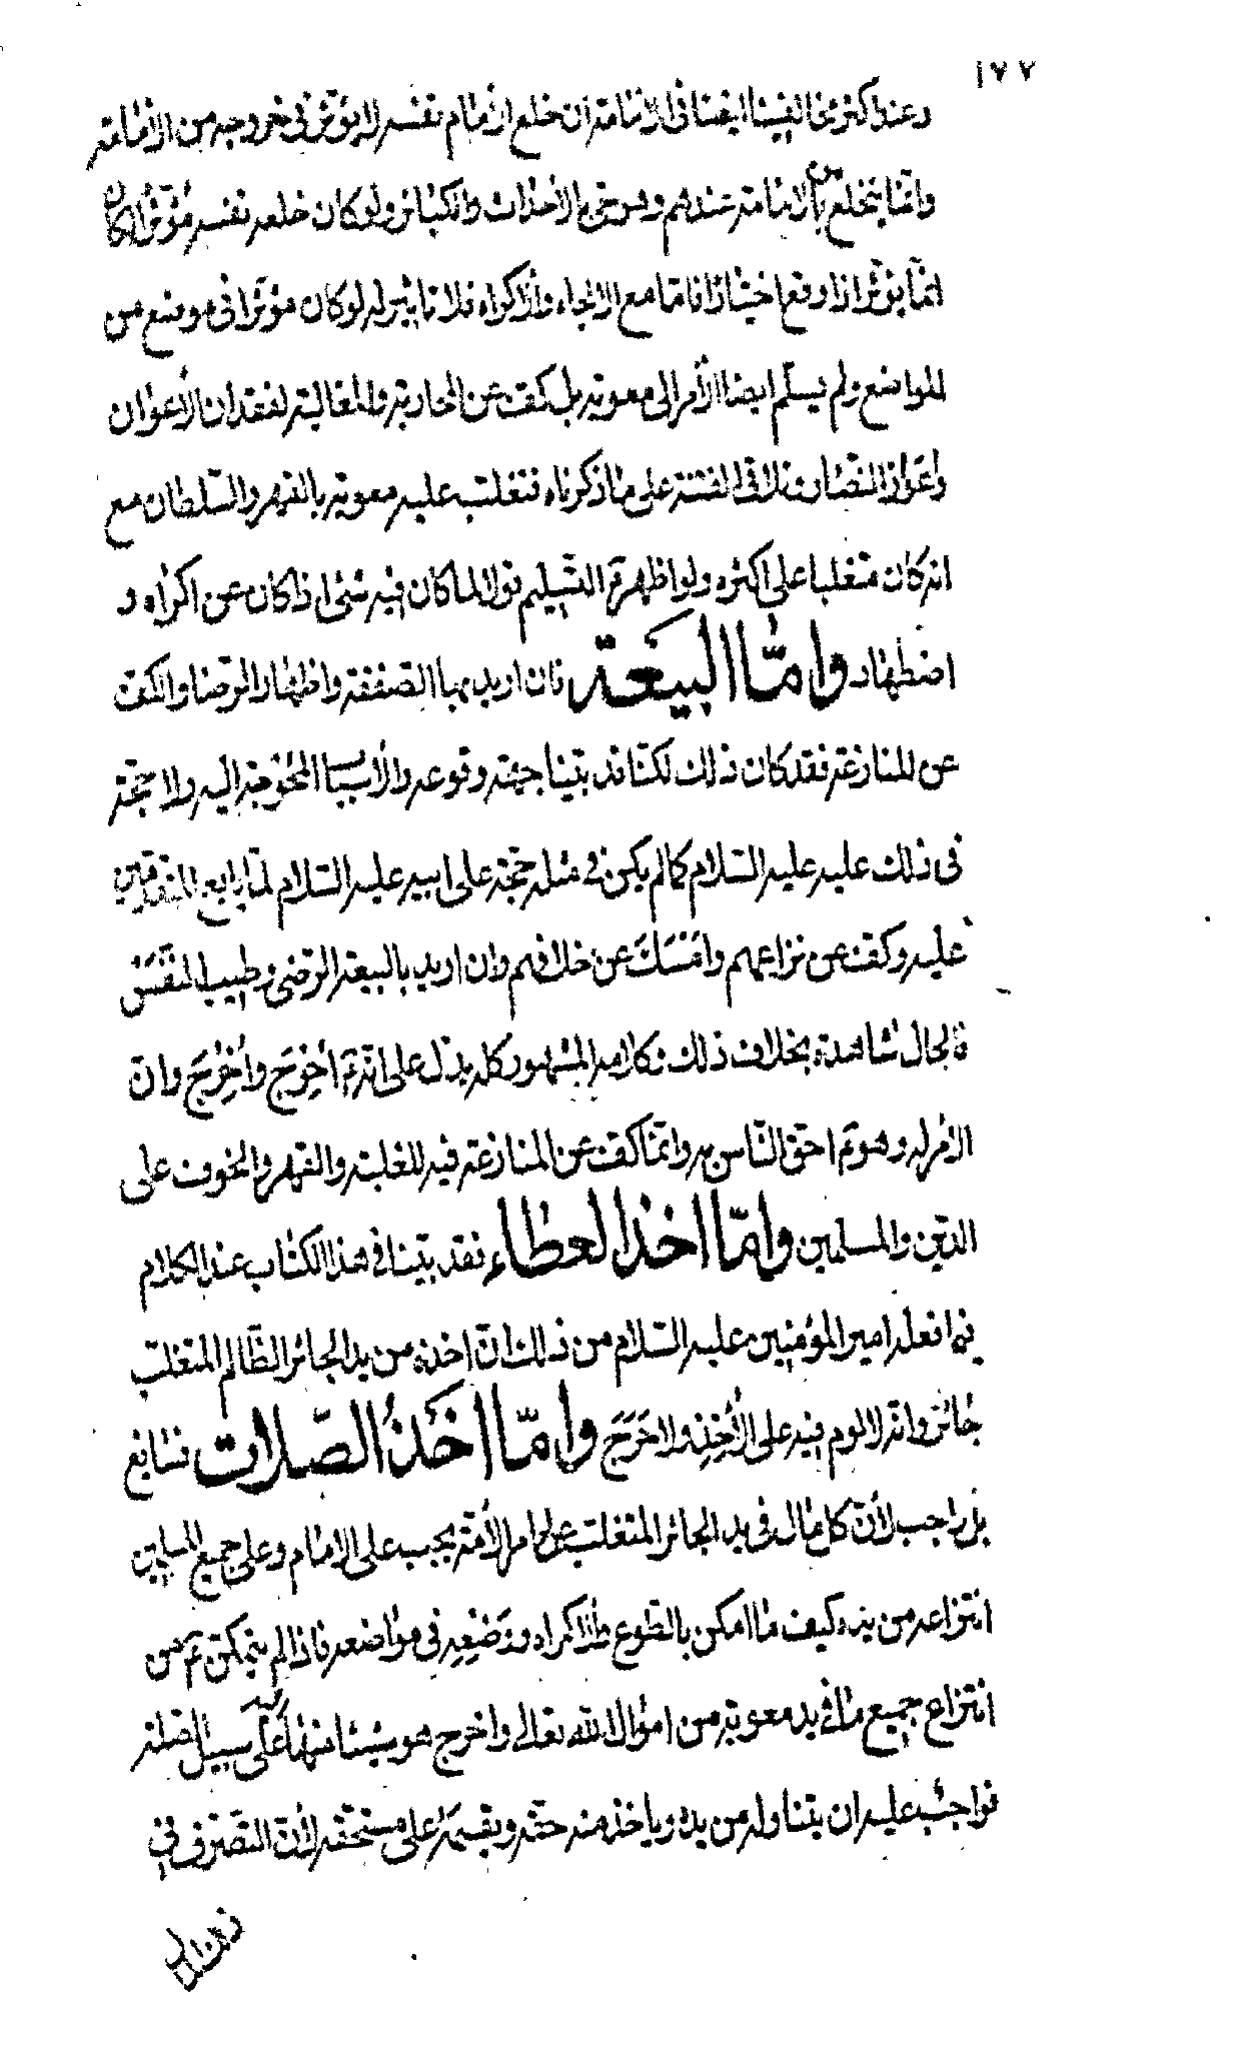 ١٧٧
وعند اكثر مخالفينا ايضا فى الامامة ان خلع الامام نفسه لا يؤثر فى خروجه من الامامة
وانما ينخلع من الامامة عندهم وهو حى بالاحداث والكبائر ولو كان خلعه نفسه مؤثرا لكان
انما يؤثر اذا وقع اختيارا فاما مع الالجاء والاكراه فلا تاثير له لو كان مؤثرا فى موضع من
المواضع ولم يسلم ايضا الامر الى معوية بل كف عن المحاربة والمغالبة لفقدان الاعوان
واعواز النصار وتلافى الفتنة على ما ذكرناه فتغلب عليه معوية بالقهر والسلطان مع
انه كان متغلبا على اكثره ولو اظهر ع التسليم قولا لما كان فيه شئ اذ كان عن اكراه و
اضطهاد وامّا البيعة فان اريد بها الصفقة واظهار الرضا والكف
عن المنازعة فقد كان ذلك لكنا قد بينا جهة وقوعه والأسباب المحوجة اليه ولا حجة
فى ذلك عليه عليه السلام كما لم يكن فى مثله حجة على ابيه عليه السلام لما بايع المتقدمين
عليه وكف عن نزاعهم وامسك عن خلافهم وان اريد بالبيعة الرضى وطيب النفس
فالحال شاهدة بخلاف ذلك وكلامه المشهور كله يدل على انه ع اُحْوِجَ واُخْرِجَ وان
الامر له وهو ع احق الناس به وانما كف عن المنازعة فيه للغلبة والقهر والخوف على
الدين والمسلمين وامّا اخذ العطاء فقد بينا فى هذا الكتاب عند الكلام
فيما فعله امير المؤمنين عليه السلام من ذلك ان اخذه من يد الجائر الظالم المتغلب
جائز وانه لا لوم فيه على الاخذ ولا حَرَج وامّا اخذُ الصّلات فسائغ
بل واجب لان كل مال فى يد الجائر المتغلب على امر الامة يجب على الامام وعلى جميع المسلمين
انتزاعه من يده كيف ما امكن بالطوع والاكراه ووضعه فى مواضعه فاذا لم يتمكن ع من
انتزاع جميع ما فى يد معوية من اموال الله تعالى واخرج هو شيئا منها اليه على سبيل الصلة
فواجب عليه ان يتناوله من يده وياخذ منه حقه ويقسمه على مستحقه لان التصرف فى